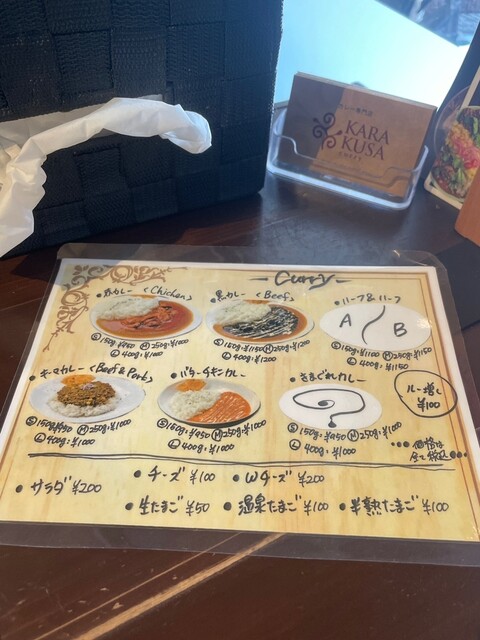 カレー専門店
KARA
KUSA
CURRY
Curry
• 赤カレー <Chicken>
Ⓢ150g:¥950 Ⓜ250g:¥1000
Ⓛ400g:¥1000
• 黒カレー <Beef>
Ⓢ150g:¥1150 Ⓜ250g:¥1200
Ⓛ400g:¥1200
• ハーフ&ハーフ
A B
Ⓢ150g:¥1100 Ⓜ250g:¥1150
Ⓛ400g:¥1150
• キーマカレー <Beef & Pork>
Ⓢ150g:¥950 Ⓜ250g:¥1000
Ⓛ400g:¥1000
• バターチキンカレー
Ⓢ150g:¥950 Ⓜ250g:¥1000
Ⓛ400g:¥1000
• きまぐれカレー
?
Ⓢ150g:¥950 Ⓜ250g:¥1000
Ⓛ400g:¥1000
ルー増し
¥100
価格は
全て税込
• サラダ ¥200
• チーズ ¥100 • Wチーズ ¥200
• 生たまご ¥50 • 温泉たまご ¥100 • 半熟たまご ¥100